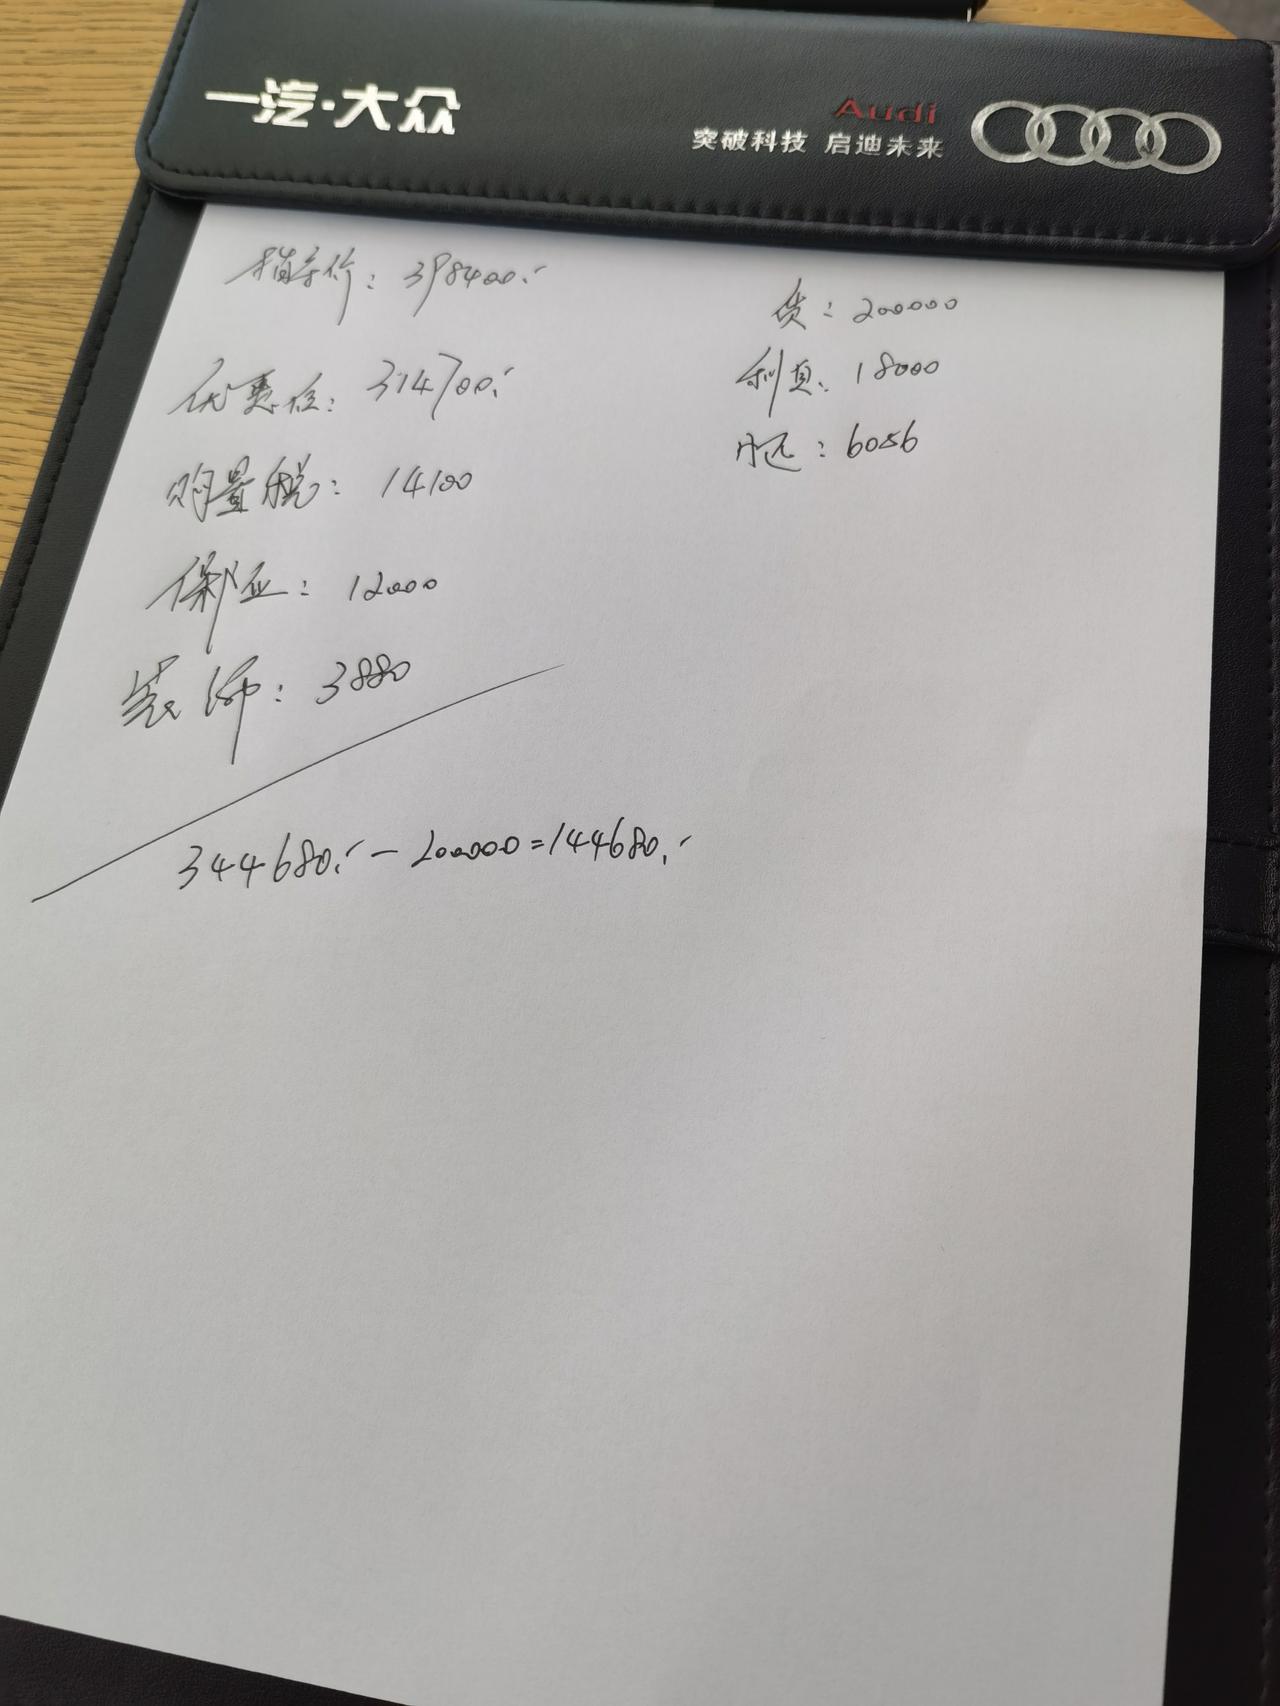 一汽·大众
Audi
突破科技 启迪未来
指导价：398400.
优惠价：314700.
购置税：14100
保险：12000
装饰：3880
344680.-200000=144680.
贷：200000
利息：18000
月还：6056